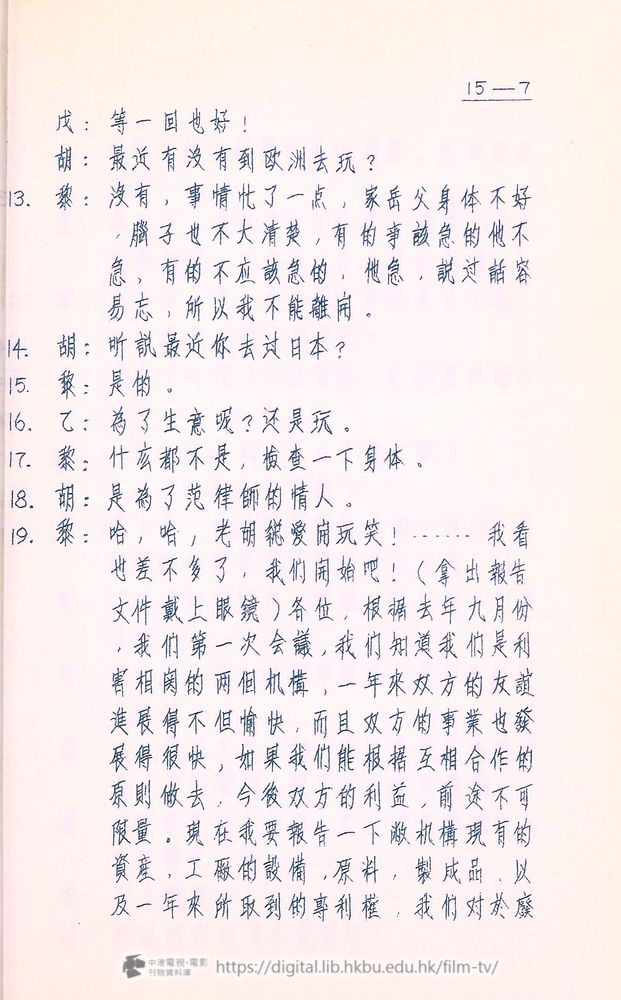 15—7
戊：等一回也好！
胡：最近有沒有到欧洲去玩？
13. 黎：沒有，事情忙了一点，家岳父身体不好
，腦子也不大清楚，有的事該急的他不
急，有的不应該急的，他急，説过話容
易忘，所以我不能離開。
14. 胡：听説最近你去过日本？
15. 黎：是的。
16. 乙：為了生意呢？还是玩。
17. 黎：什庅都不是，檢查一下身体。
18. 胡：是為了范律師的情人。
19. 黎：哈，哈，老胡總愛開玩笑！…… 我看
也差不多了，我们開始吧！（拿出報告
文件戴上眼鏡）各位，根据去年九月份
，我们第一次会議，我们知道我们是利
害相関的两個机構，一年來双方的友誼
進展得不但愉快，而且双方的事業也發
展得很快，如果我们能根据互相合作的
原則做去，今後双方的利益，前途不可
限量。現在我要報告一下敝机構現有的
資產，工廠的設備，原料，製成品，以
及一年來所取到的專利權，我们对於廢
中港電視・電影
刊物資料庫
https://digital.lib.hkbu.edu.hk/film-tv/